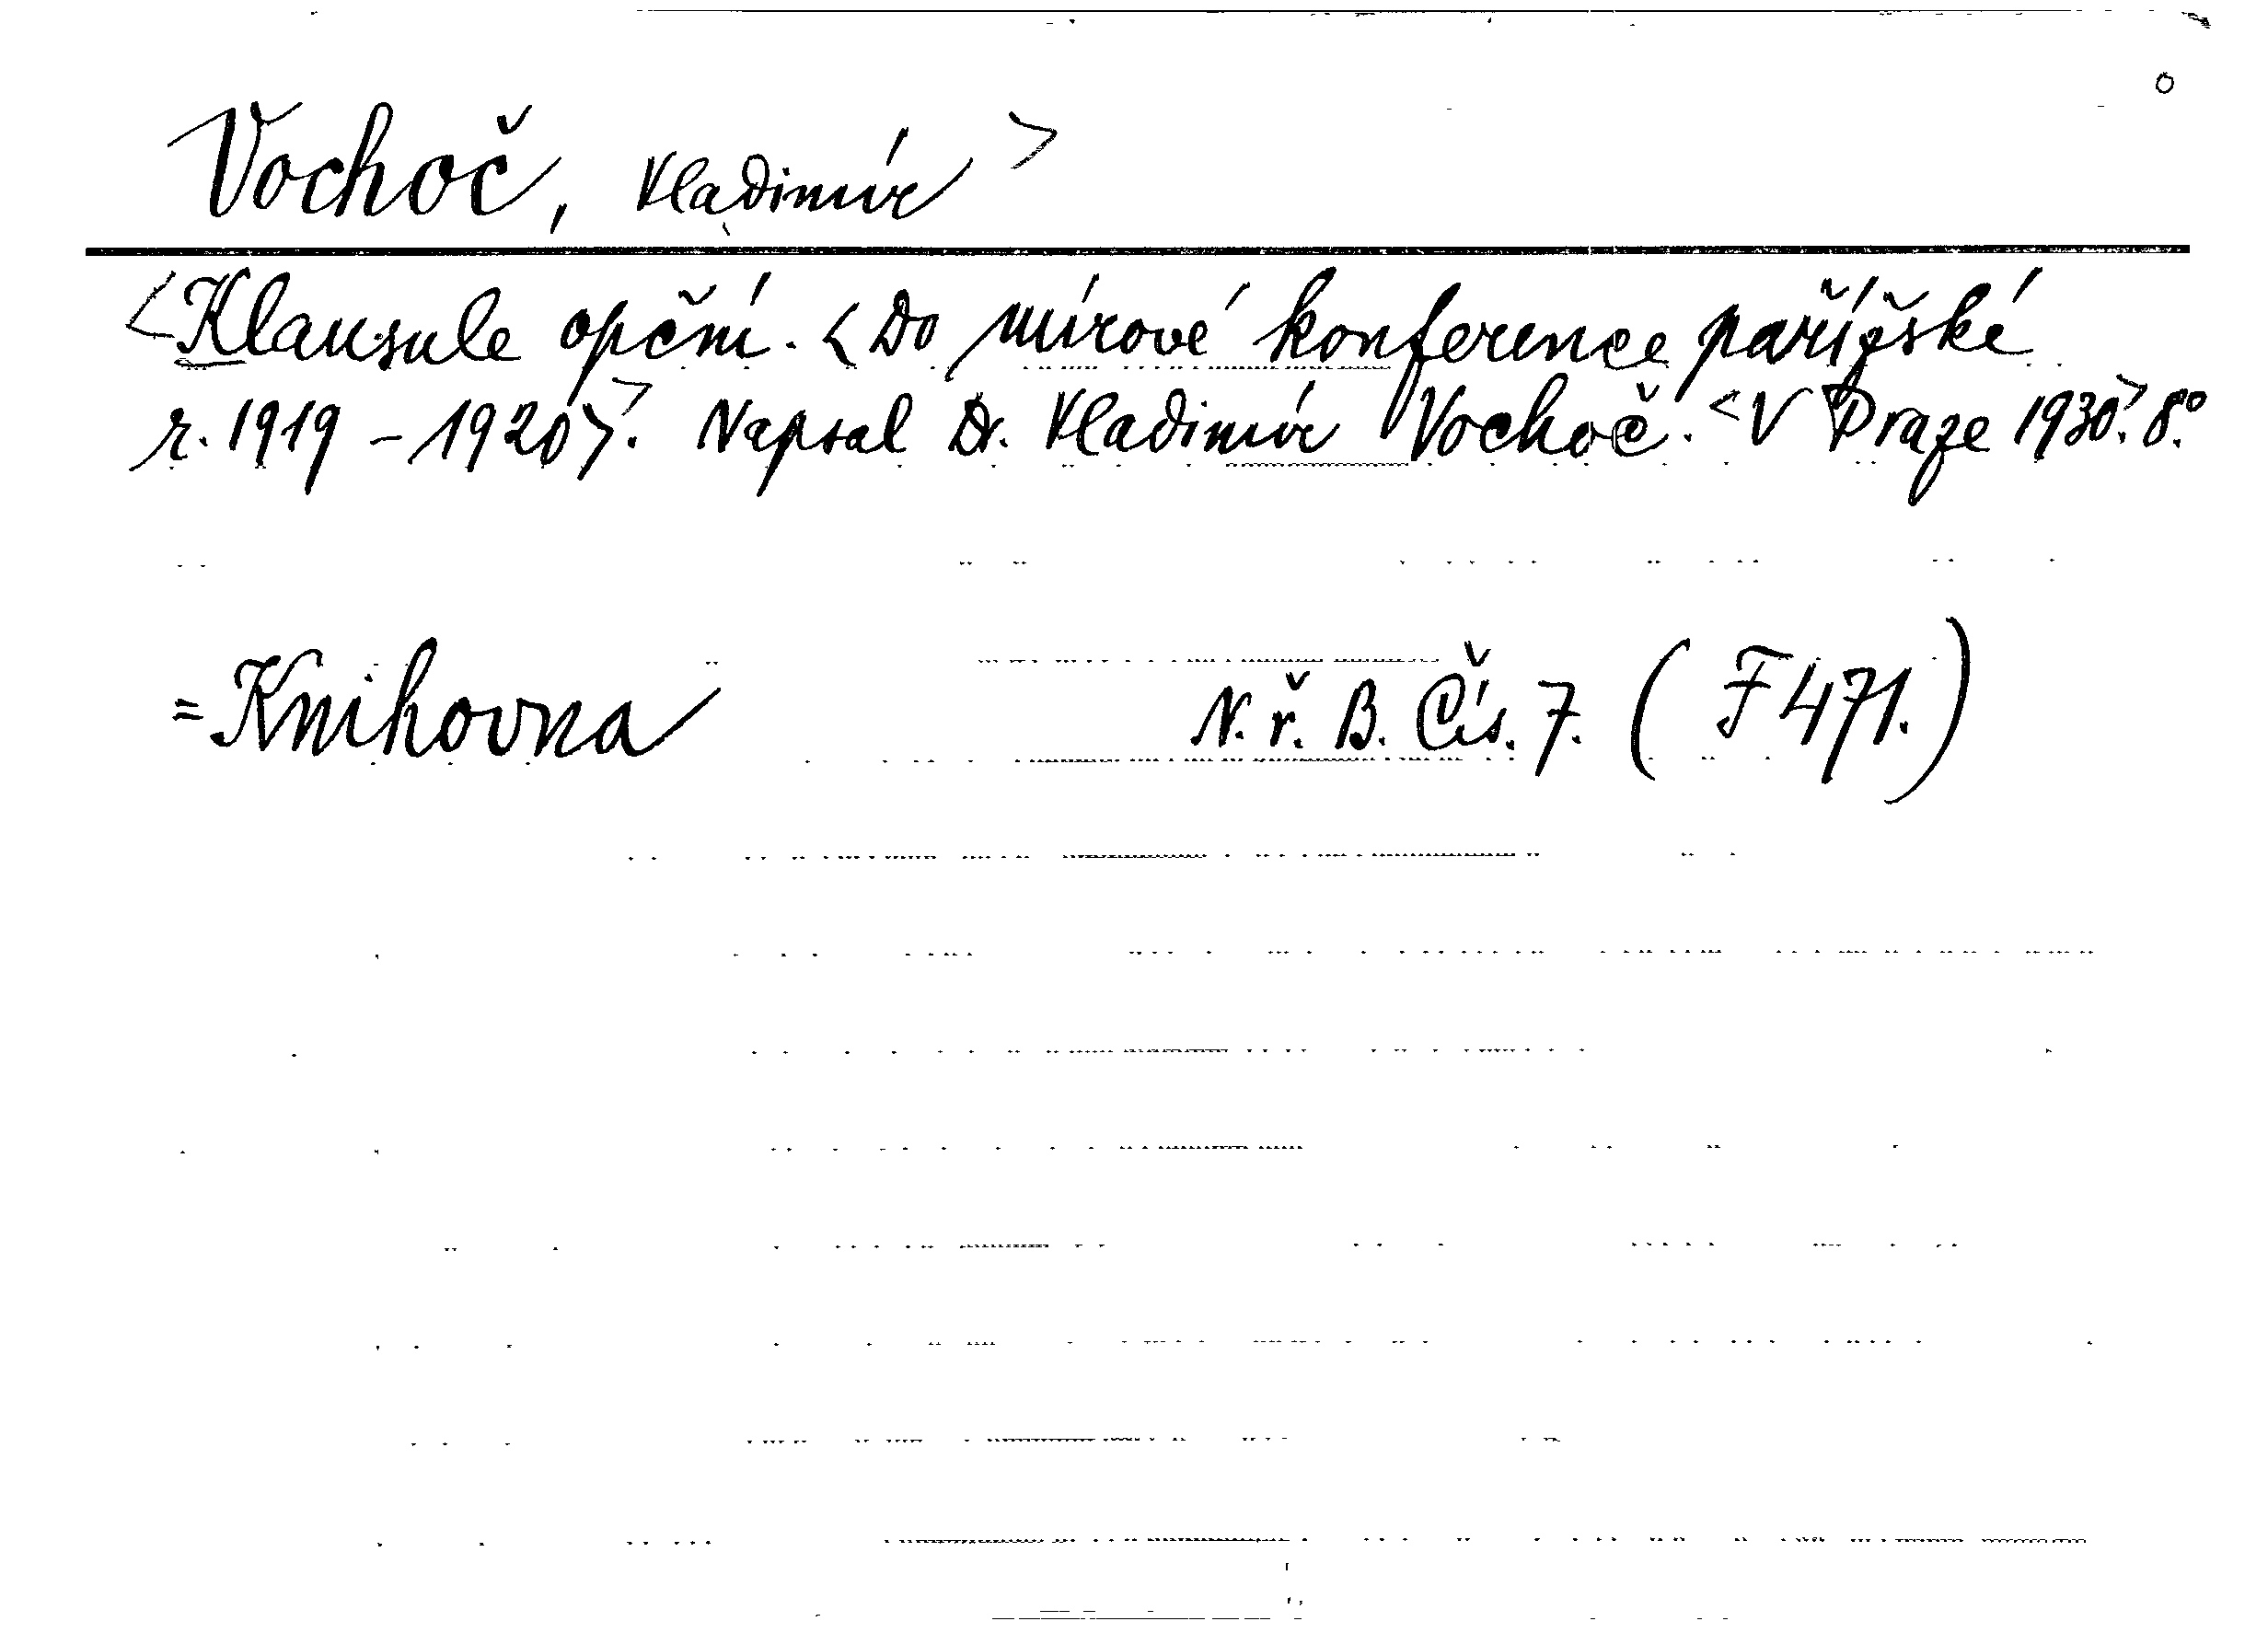 Vochoč, Vladimír >
<Klausule opční. <Do mírové konference pařížské
r. 1919 - 1920>>. Napsal Dr. Vladimír Vochoč. <V Praze 1930>. 8º.
= Knihovna N. ř. B. Čís. 7. (F 471.)